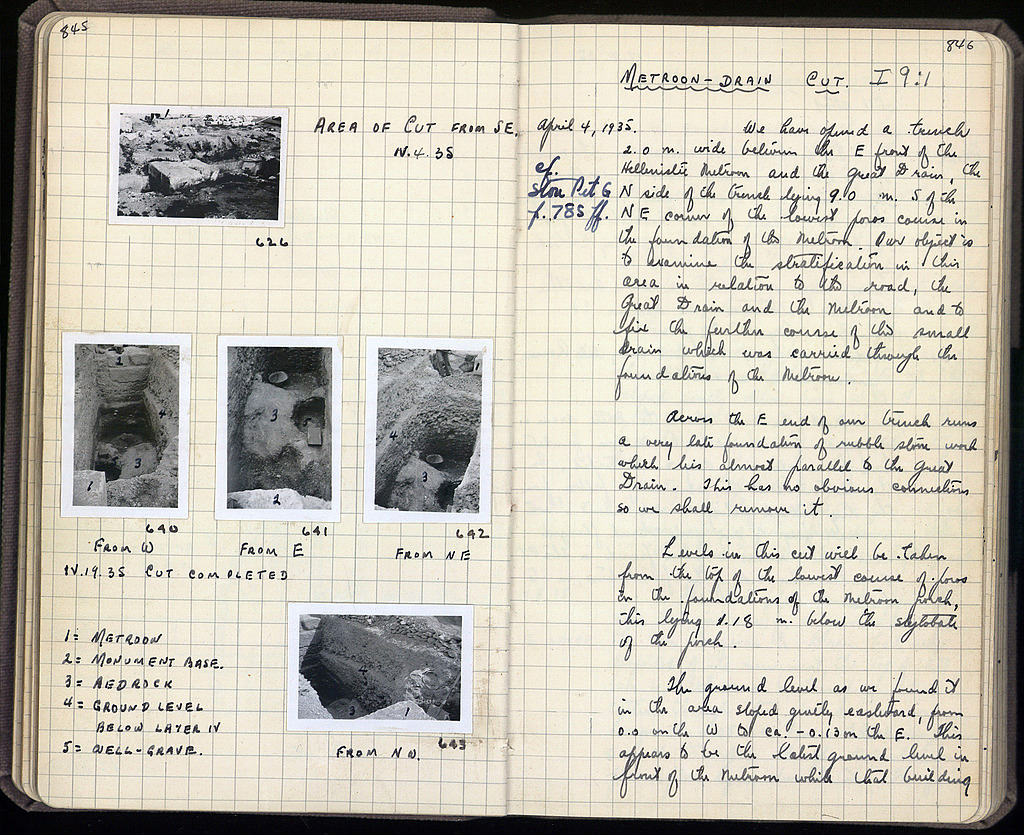 845
AREA OF CUT FROM SE.
IV.4.35
626
640
641
642
FROM W
FROM E
FROM NE
IV.19.35 CUT COMPLETED
1 = METROON
2 = MONUMENT BASE.
3 = BEDROCK
4 = GROUND LEVEL
BELOW LAYER IV
5 = WELL-GRAVE.
643
FROM NW.
846
METROON-DRAIN CUT. I 9:1
April 4, 1935.
cf.
Stou Pit G
p. 785 ff.
We have opened a trench
2.0 m. wide between the E front of the
Hellenistic Metroon and the Great Drain, the
N side of the trench lying 9.0 m. S of the
NE corner of the lowest poros course in
the foundation of the Metroon. Our object is
to examine the stratification in this
area in relation to the road, the
Great Drain and the Metroon and to
fix the further course of the small
drain which was carried through the
foundations of the Metroon.
Across the E end of our trench runs
a very late foundation of rubble stone work
which lies almost parallel to the Great
Drain. This has no obvious connections
so we shall remove it.
Levels in this cut will be taken
from the top of the lowest course of poros
in the foundations of the Metroon porch,
this lying 1.18 m. below the stylobate
of the porch.
The ground level as we found it
in the area sloped gently eastward, from
0.0 on the W to ca. -0.13m on the E. This
appears to be the latest ground level in
front of the Metroon while that building